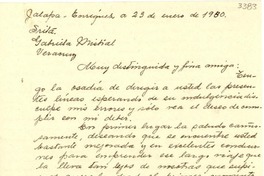 3383
Jalapa-Enríquez a 23 de enero de 1950.
Srita.
Gabriela Mistral
Veracruz
Muy distinguida y fina amiga:
Tengo la osadía de dirigir a usted las presentes
líneas esperando de su indulgencia
mis errores y sólo vea el deseo de
con mi deber.
En primer lugar la saludo
deseando que se encuentre usted
bastante mejorada y en excelentes
para emprender ese largo viaje que
la lleva tan lejos de